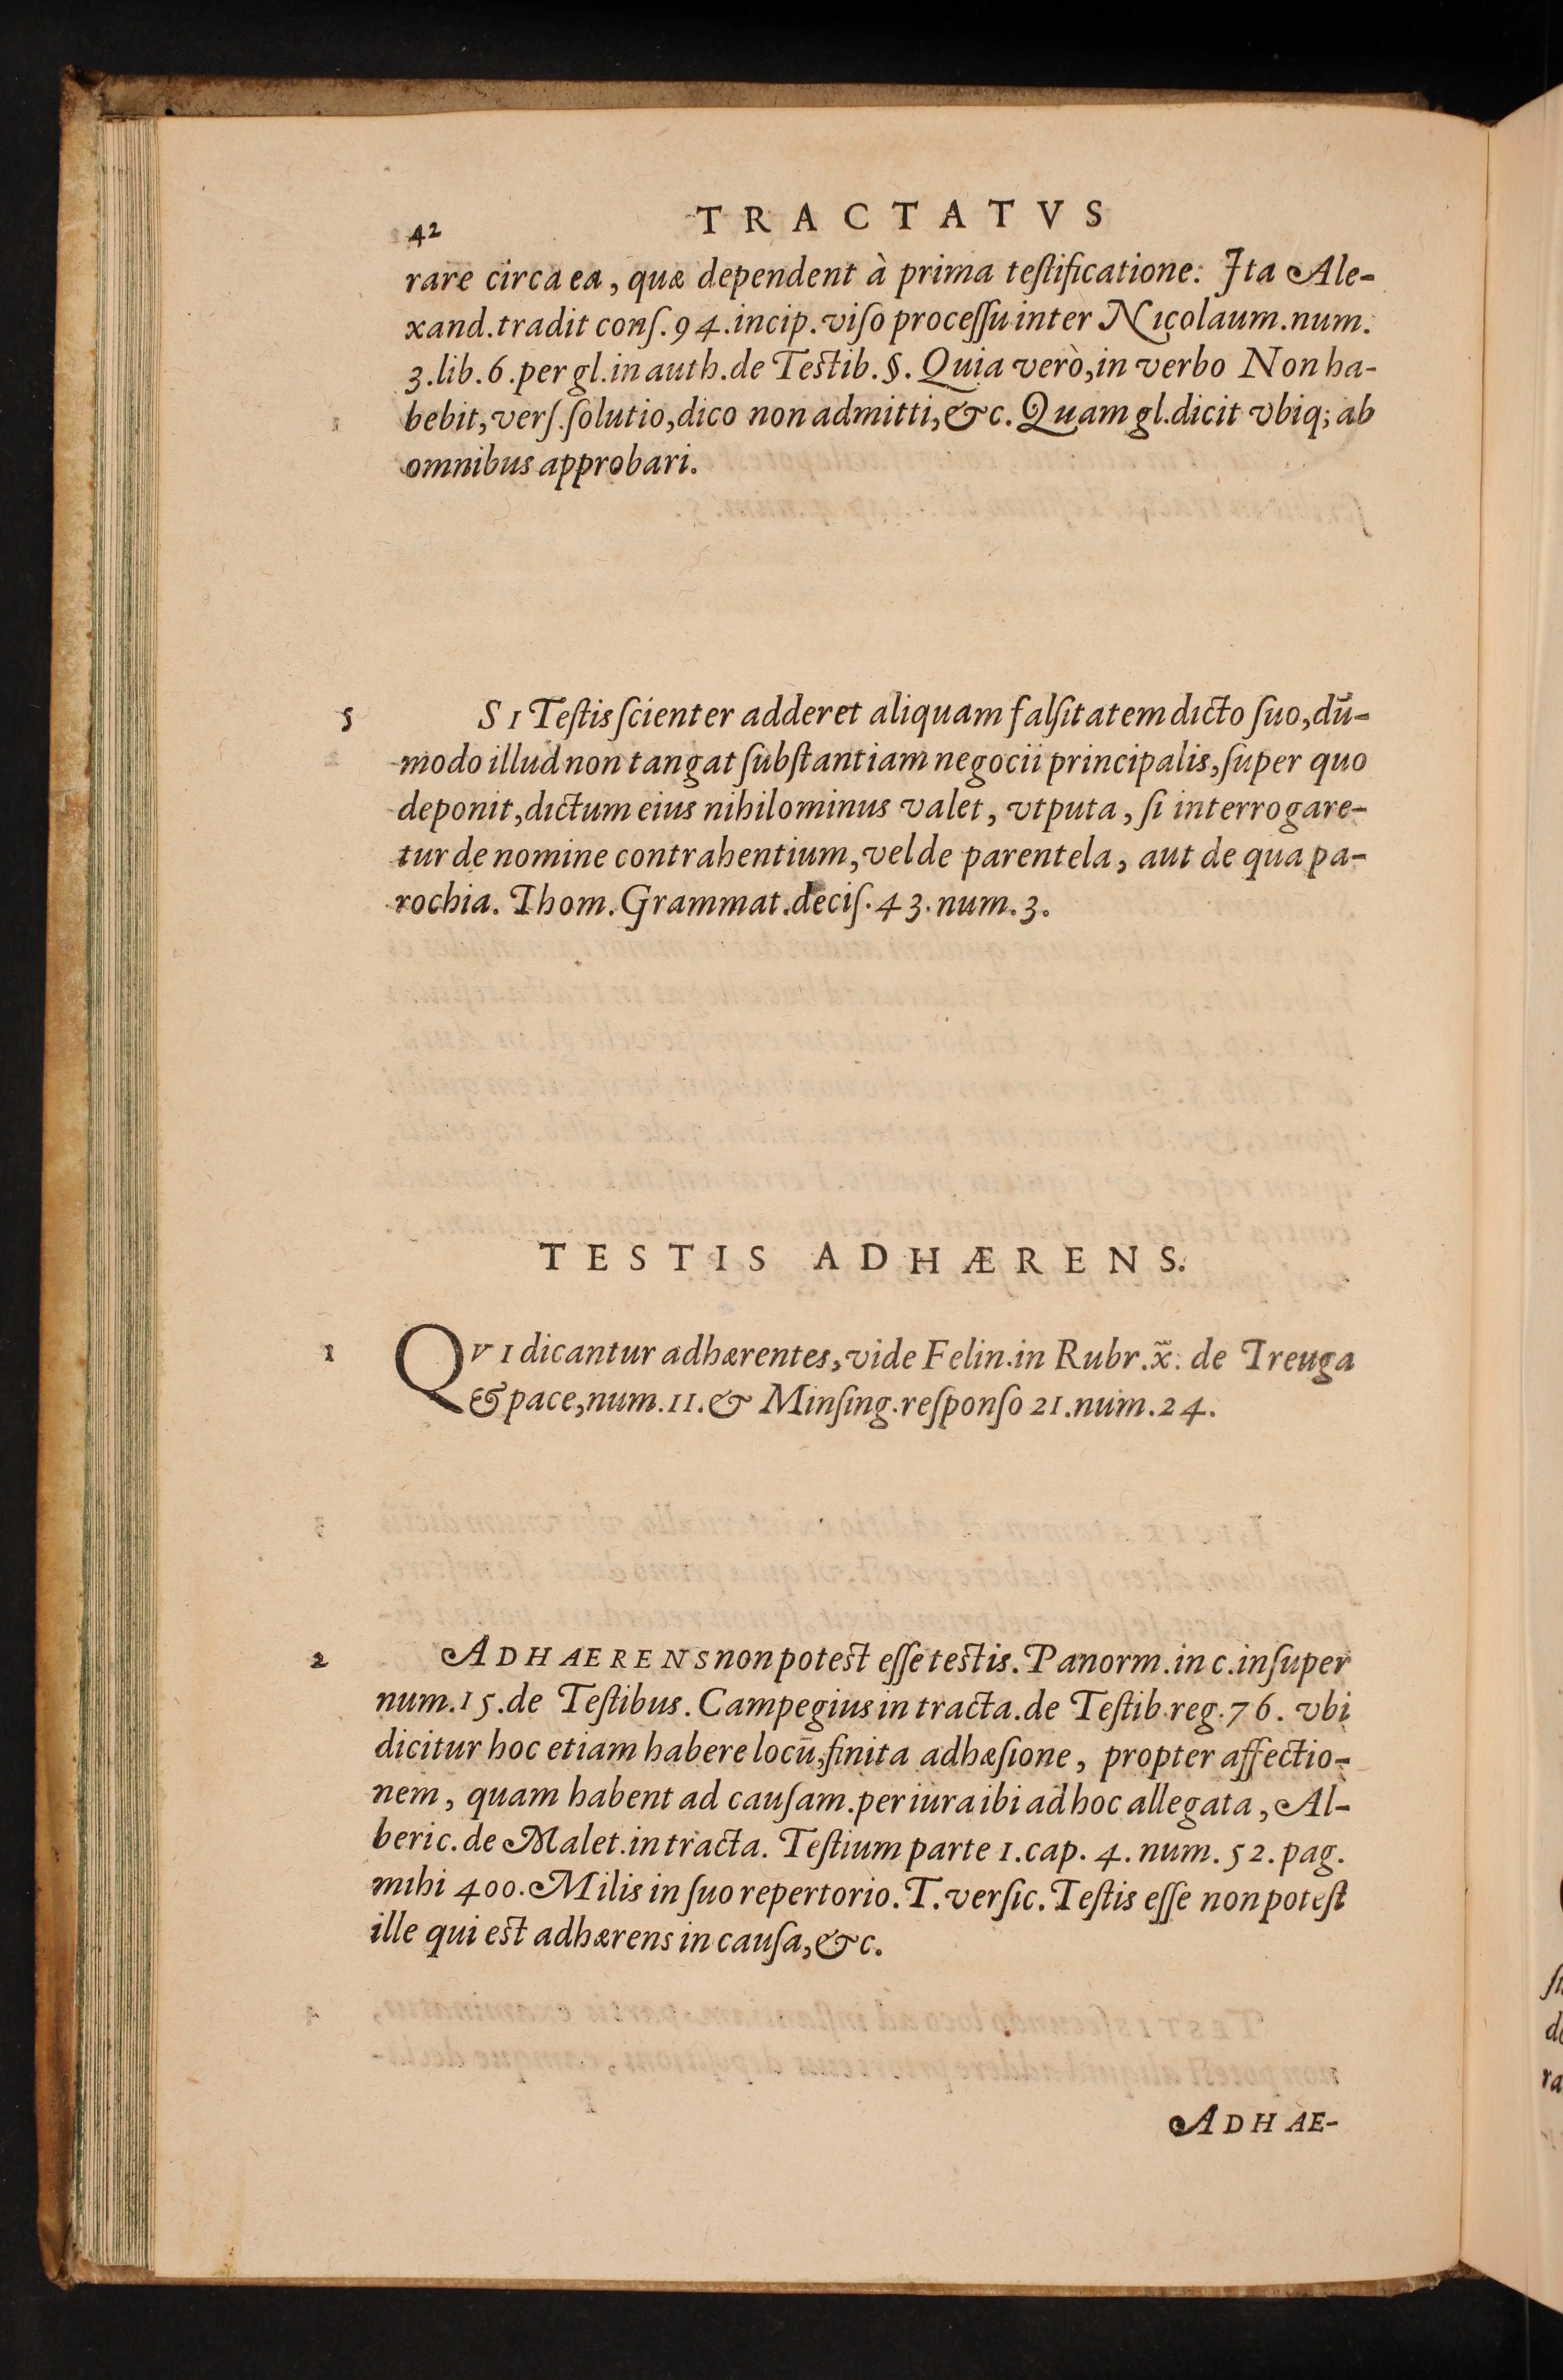 42 TRACTATVS
rare circa ea, quæ dependent à prima teſtificatione. Ita Ale-
xand. tradit conſ. 94. incip. viſo proceſſu inter Nicolaum. num.
3. lib. 6. per gl. in auth. de Teſtib. §. Quia verò, in verbo Non ha-
bebit, verſ. ſolutio, dico non admitti, &c. Quam gl. dicit vbiq; ab
omnibus approbari.
5 SI Teſtis ſcienter adderet aliquam falſitatem dicto ſuo, dū-
modo illud non tangat ſubſtantiam negocii principalis, ſuper quo
deponit, dictum eius nihilominus valet, vtputa, ſi interrogare-
tur de nomine contrahentium, vel de parentela, aut de qua pa-
rochia. Thom. Grammat. deciſ. 43. num. 3.
TESTIS ADHÆRENS.
1 QVI dicantur adhærentes, vide Felin. in Rubr. x̃. de Treuga
& pace, num. 11. & Minſing. reſponſo 21. num. 24.
2 ADHAERENS non poteſt eſſe teſtis. Panorm. in c. inſuper
num. 15. de Teſtibus. Campegius in tracta. de Teſtib. reg. 76. vbi
dicitur hoc etiam habere locū, finita adhæſione, propter affectio-
nem, quam habent ad cauſam. per iura ibi ad hoc allegata, Al-
beric. de Malet. in tracta. Teſtium parte 1. cap. 4. num. 52. pag.
mihi 400. Milis in ſuo repertorio. T. verſic. Teſtis eſſe non poteſt
ille qui eſt adhærens in cauſa, &c.
ADHAE-